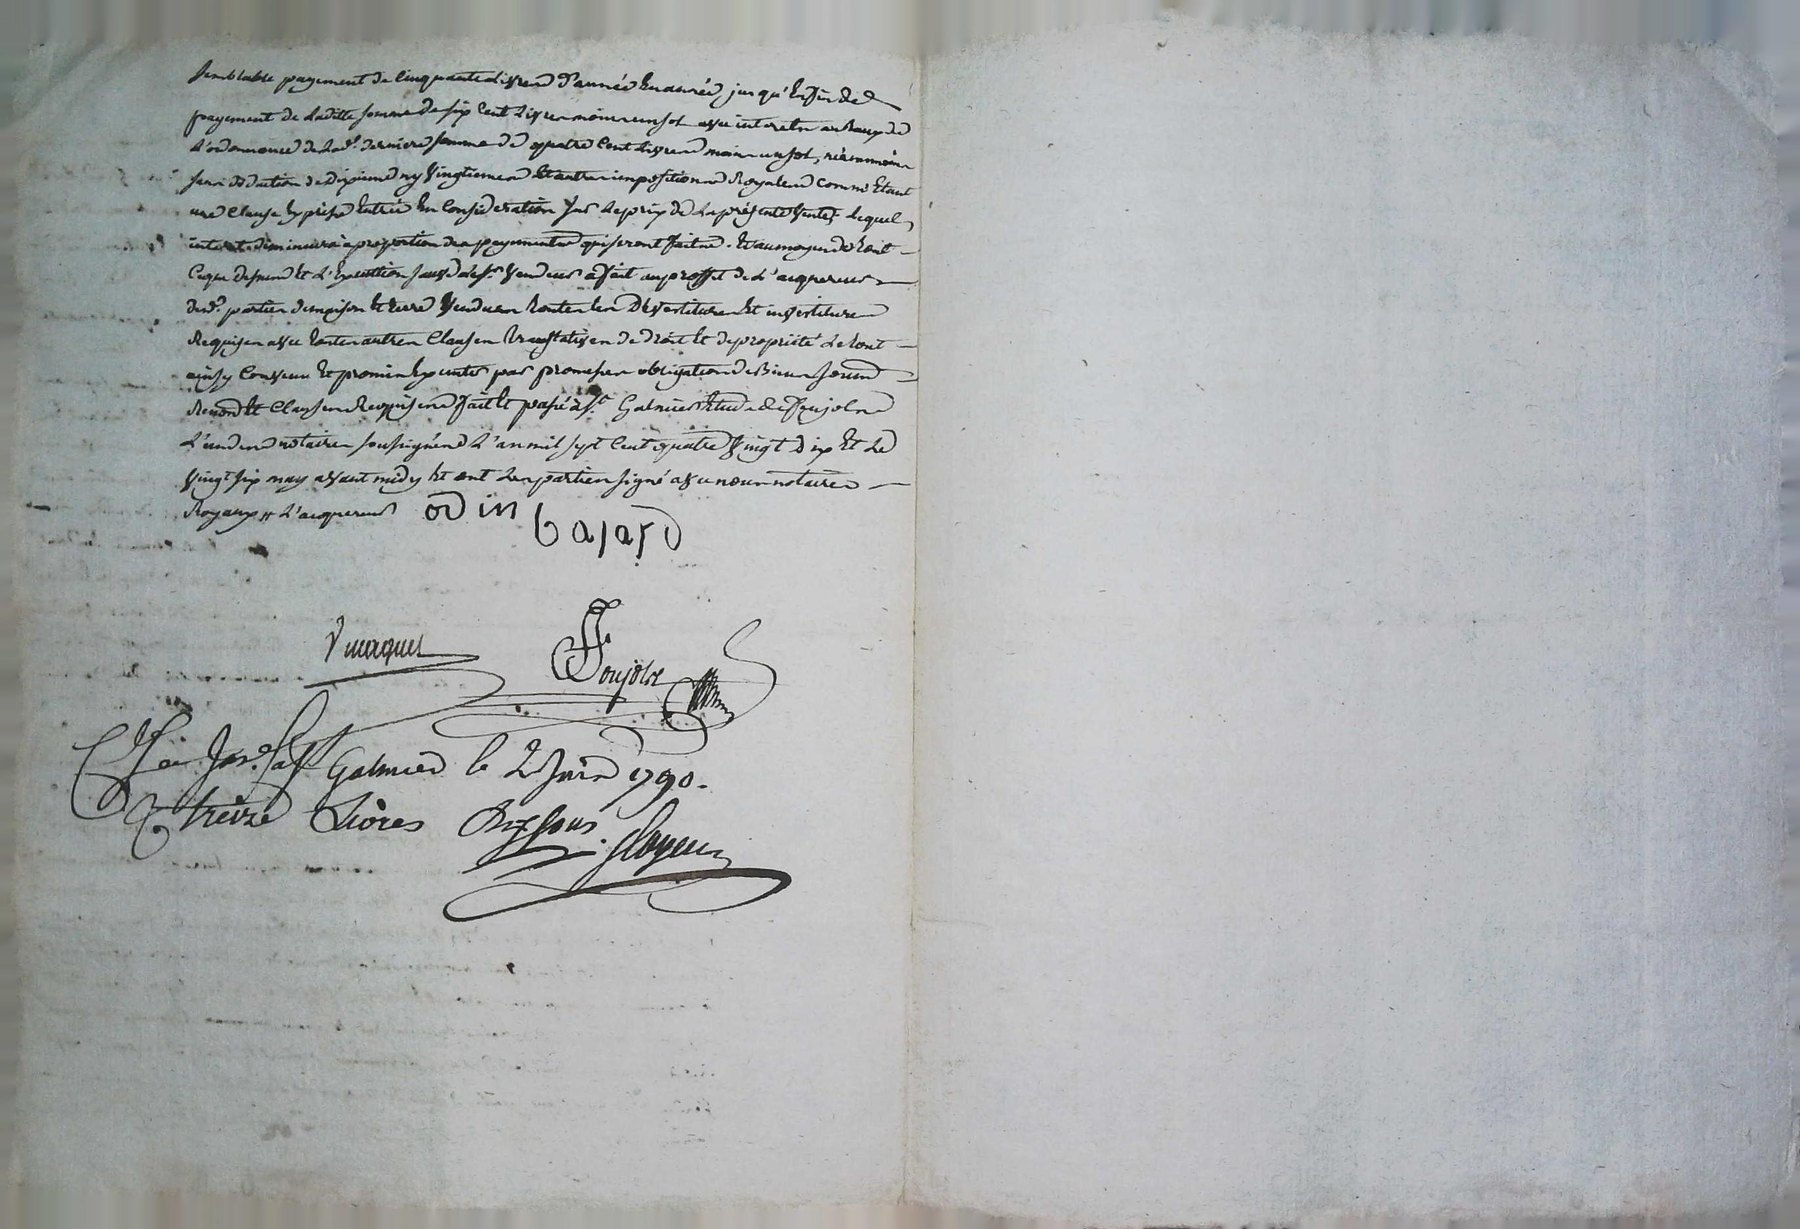 semblable payement de cinquante livres d'année en année jusqu'enfin de
payement de laditte somme de six cent livres moins un sol avec interets au taux de
l'ordonnance de lad.e derniere somme de quatre cent livres moins un sol, néanmoins
sans deduction de dixieme ny vingtiemes et autres impositions Royales comme etant
une clause expresse entrée en consideration sur le prix de la presente vente, lequel
interet diminuera a proportion des payements qui seront faits. Et au moyen de tout
ce que dessus et l'execution sauve led.t sr vendeur a fait au proffit de l'acquereur
desd.s parties de maison et terre vendues toutes les devestitures et investitures
Requises avec toutes autres clauses translatives de droit et de propriété le tout
ainsy convenu et promis executer par promesses obligation de biens soumis
Renon.s et clauses Requises fait et passé a St Galmier Etude de Foujols
l'un des notaires soussignés l'an mil sept cent quatre vingt dix et le
vingt six may avant midy et ont les parties signé avec nous notaires
Royaux l'acquereur odin bajard
Foujols
a St Galmier le 2 Juin 1790.
treize Livres dix sous